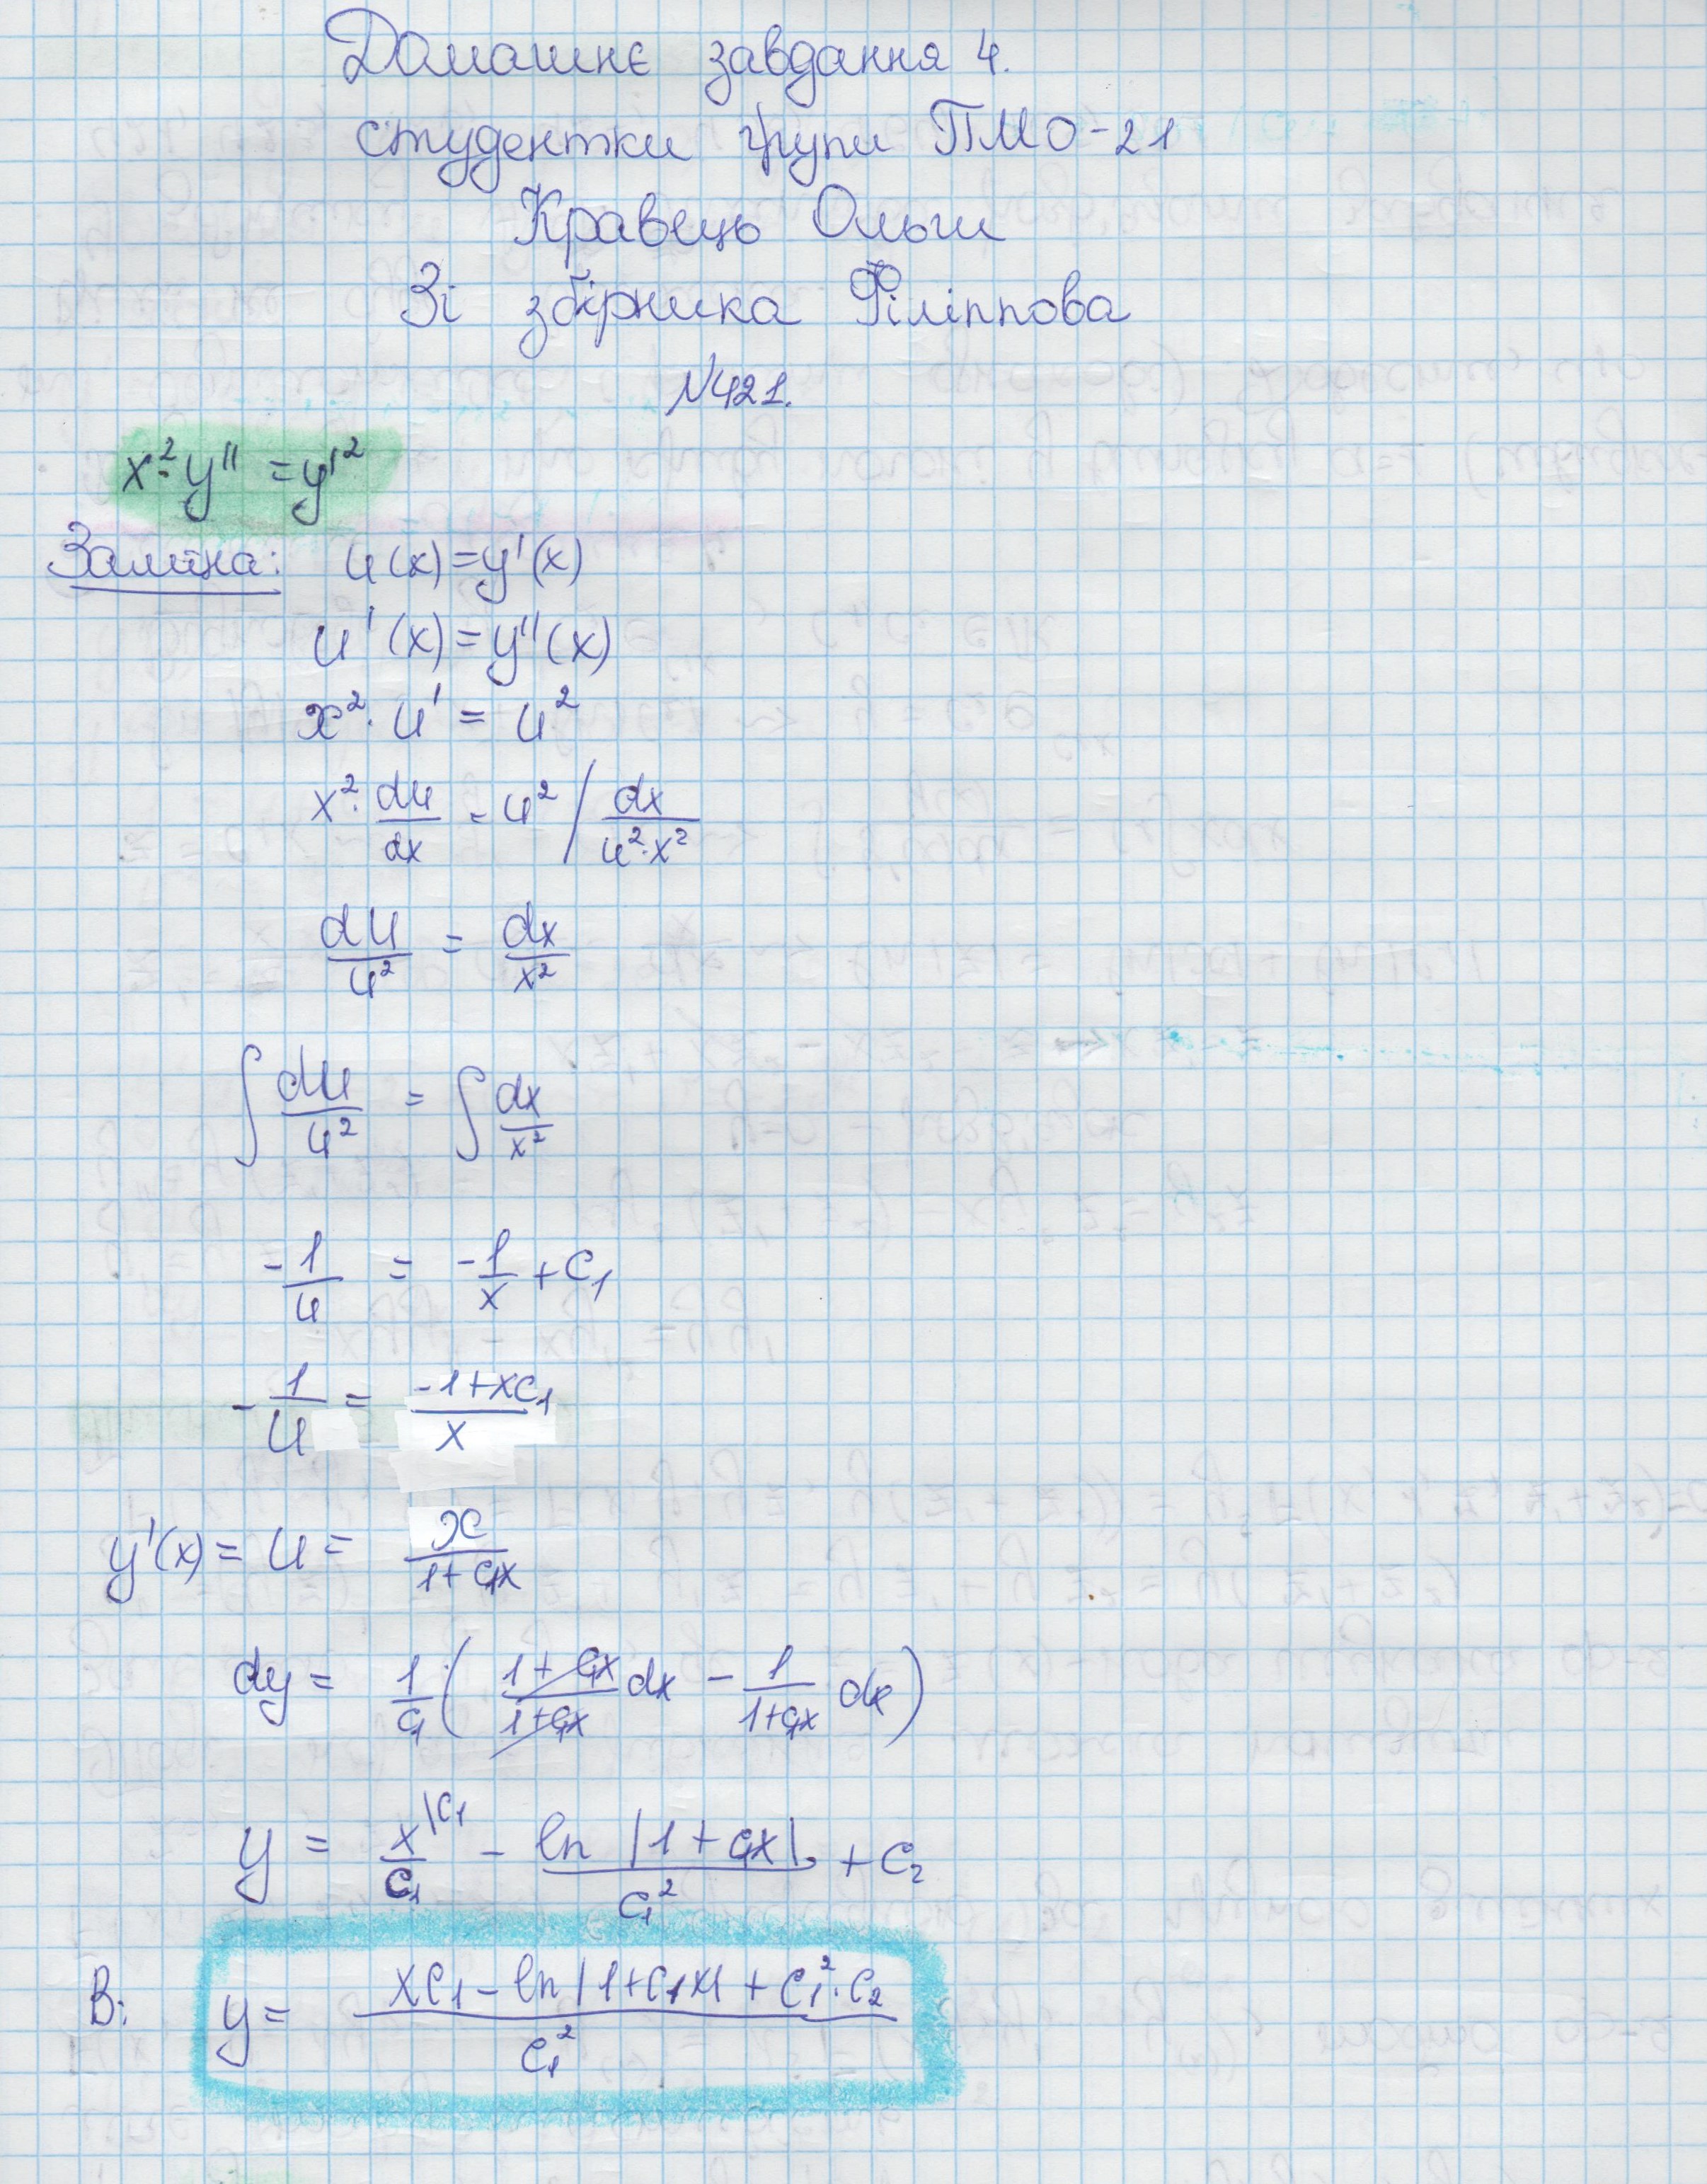 Домашнє завдання 4.
студентки групи ПМО-21
Кравець Ольги
Зі збірника Філіппова
№421.
x²·y'' = y'²
Заміна: u(x)=y'(x)
u'(x)=y''(x)
x²·u' = u²
x²·du/dx = u² / dx/(u²·x²)
du/u² = dx/x²
∫du/u² = ∫dx/x²
-1/u = -1/x + C₁
-1/u = (-1+xC₁)/x
y'(x) = u = x/(1+C₁x)
dy = 1/C₁ · ( (1+C₁x)/(1+C₁x) dx - 1/(1+C₁x) dx )
y = x/C₁ |C₁ - ln|1+C₁x|/C₁² + C₂
В: y = (xC₁ - ln|1+C₁x| + C₁²·C₂)/C₁²